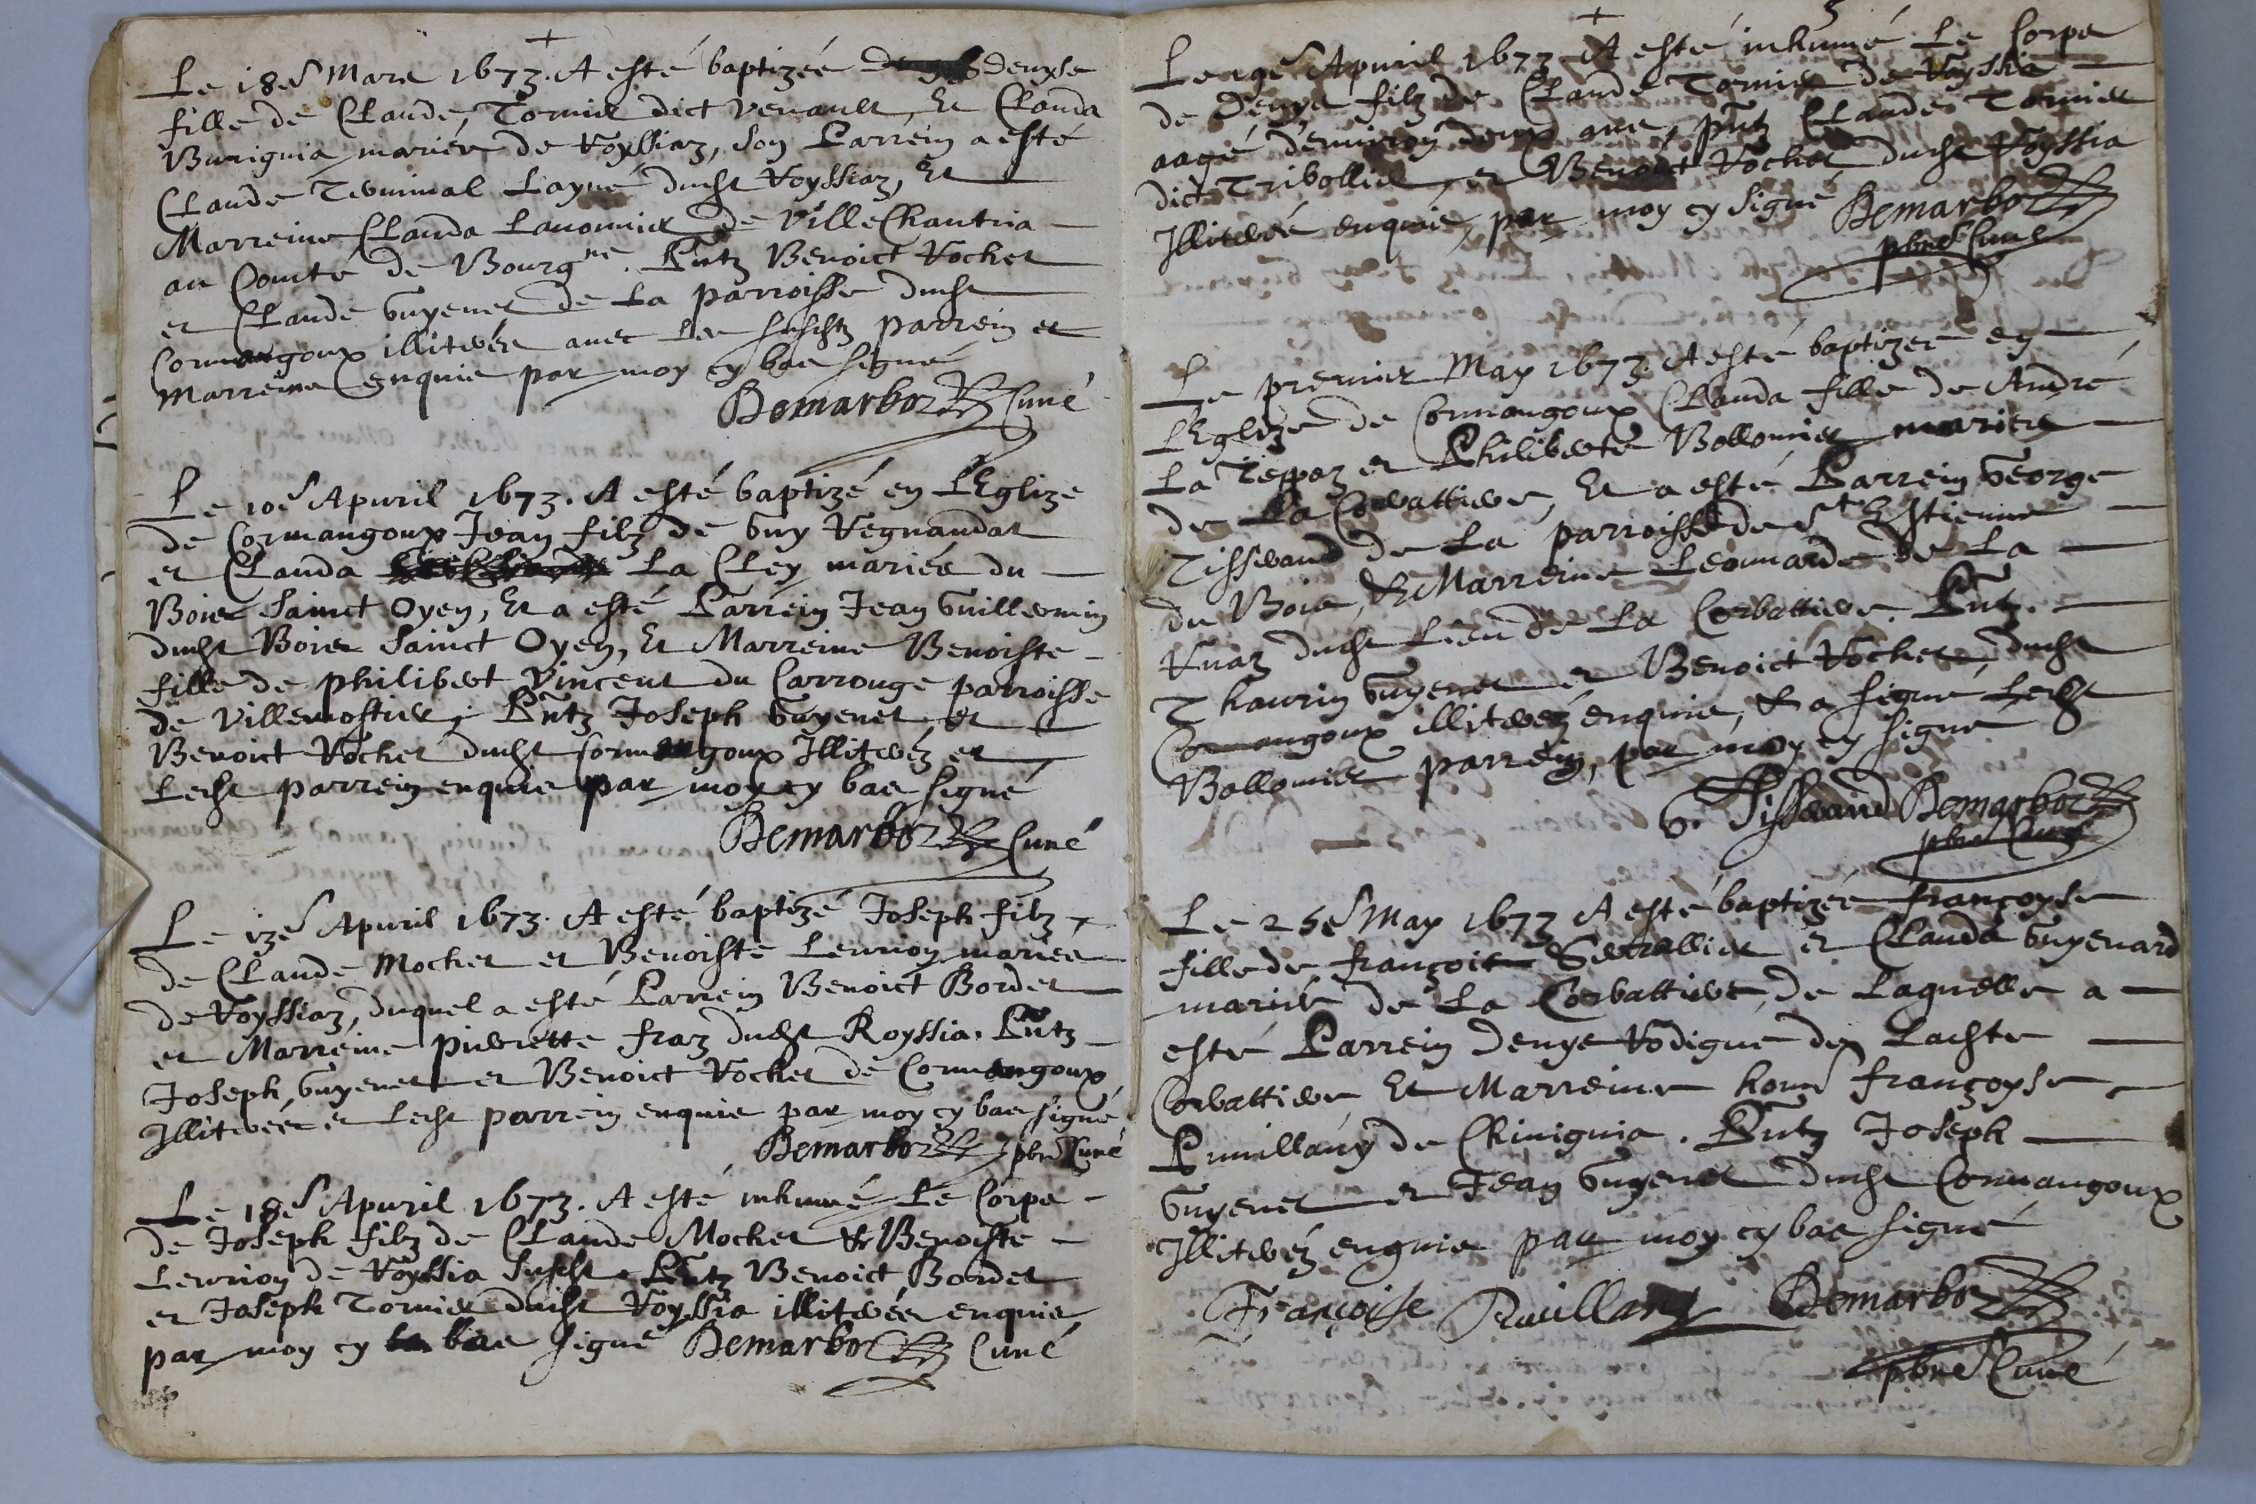 Le 18e Mars 1673. A esté baptizée denyse
fille de Claude Tornier dict Venault, Et Clauda
Buriguia mariés de Royssiaz, Son Parrein a esté
Claude Tevuinal Laysné dudt Royssiaz, Et
Marreine Clauda Lavonnier de Villechantria
au Comté de Bourgne. Pntz Benoict Rochet
et Claude Guyenet de La parroisse dudt
Cormangoux illiterés avec Les susdtz parrein et
Marreine enquis par moy cy bas signé
Demarboz Curé
Le 10e Apuril 1673. A esté baptizé en L'Eglize
de Cormangoux Jean filz de Guy Regnaudat
et Clauda La Cley mariés du
Bois Sainct Oyen, Et a esté Parrein Jean Guillermin
dudt Bois Sainct Oyen, Et Marreine Benoiste
fille de philibert Vincent du Carrouge parroisse
de Villemostier; Pntz Joseph Guyenet et
Benoict Rochet dudt Cormangoux Illiteréz et
Ledt parrein enquis par moy cy bas signé
Demarboz Curé
Le 13e Apuril 1673. A esté baptizé Joseph filz
de Claude Mochet et Benoiste Leurion mariés
de Royssiaz, duquel a esté Parrein Benoict Bordet
et Marreine pierrette fraz dudt Royssia. Pntz
Joseph Guyenet et Benoict Rochet de Cormangoux
Illiterés et Ledt parrein enquis par moy cy bas signé
Demarboz pbre Curé
Le 18e Apuril 1673. A esté inhumé Le Corps
de Joseph filz de Claude Mochet & Benoiste
Leurion de Royssia susdt. Pntz Benoict Bordet
et Joseph Tornier dudt Royssia illiterés enquis
par moy cy bas signé Demarboz Curé
5
Le 19e Apuril 1673 A esté inhumé Le Corps
de Denys filz de Claude Tornier de Royssia
aagé d'environ deux ans, pntz Claude Tornier
dict Tribollier, et Benoict Rochet dudt Royssia
Illiterés enquis, par moy cy signé Demarboz
pbre Curé
Le premier May 1673. A esté baptizee en
L'Eglize de Cormangoux Clauda fille de André
La Teppaz et Philiberte Bollomier mariés
de La Corbattiere, Et a esté Parrein George
Tisserand de La parroisse de St Estienne
du Bois, & Marreine Leonnarde de La
Ruaz dudt Lieu de La Corbattiere. Pntz.
Thaurin Guyenet et Benoict Rochet, dudt
Cormangoux illiteréz enquis, & a signé Ledt
Bollomier parrein, par moy cy signé
G. Tisserand Demarboz
pbre Curé
Le 25e May 1673 A esté baptizée françoyse
fille de françois Setrallier et Clauda Guyenard
mariés de La Corbattiere, de Laquelle a
esté Parrein Denys Rodigue de Ladte
Corbattiere Et Marreine françoyse
Ruillany de Chiniguia. Pntz Joseph
Guyenet et Jean Guyenet dudt Cormangoux
Illiteréz enquis par moy cy bas signé
Françoise Ruillany Demarboz
pbre Curé